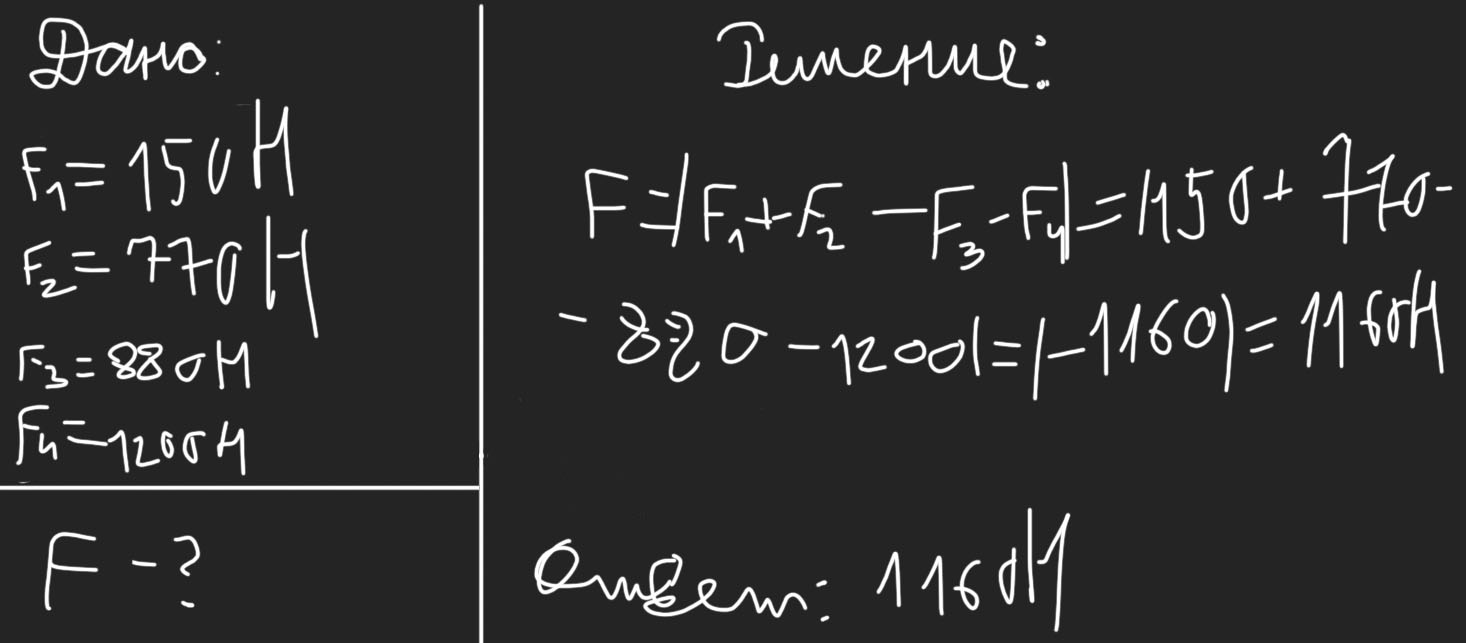 Дано:
F₁ = 150 Н
F₂ = 770 Н
F₃ = 880 Н
F₄ = 1200 Н
F - ?
Решение:
F = |F₁ + F₂ - F₃ - F₄| = |150 + 770 -
- 880 - 1200| = |-1160| = 1160 Н
Ответ: 1160 Н